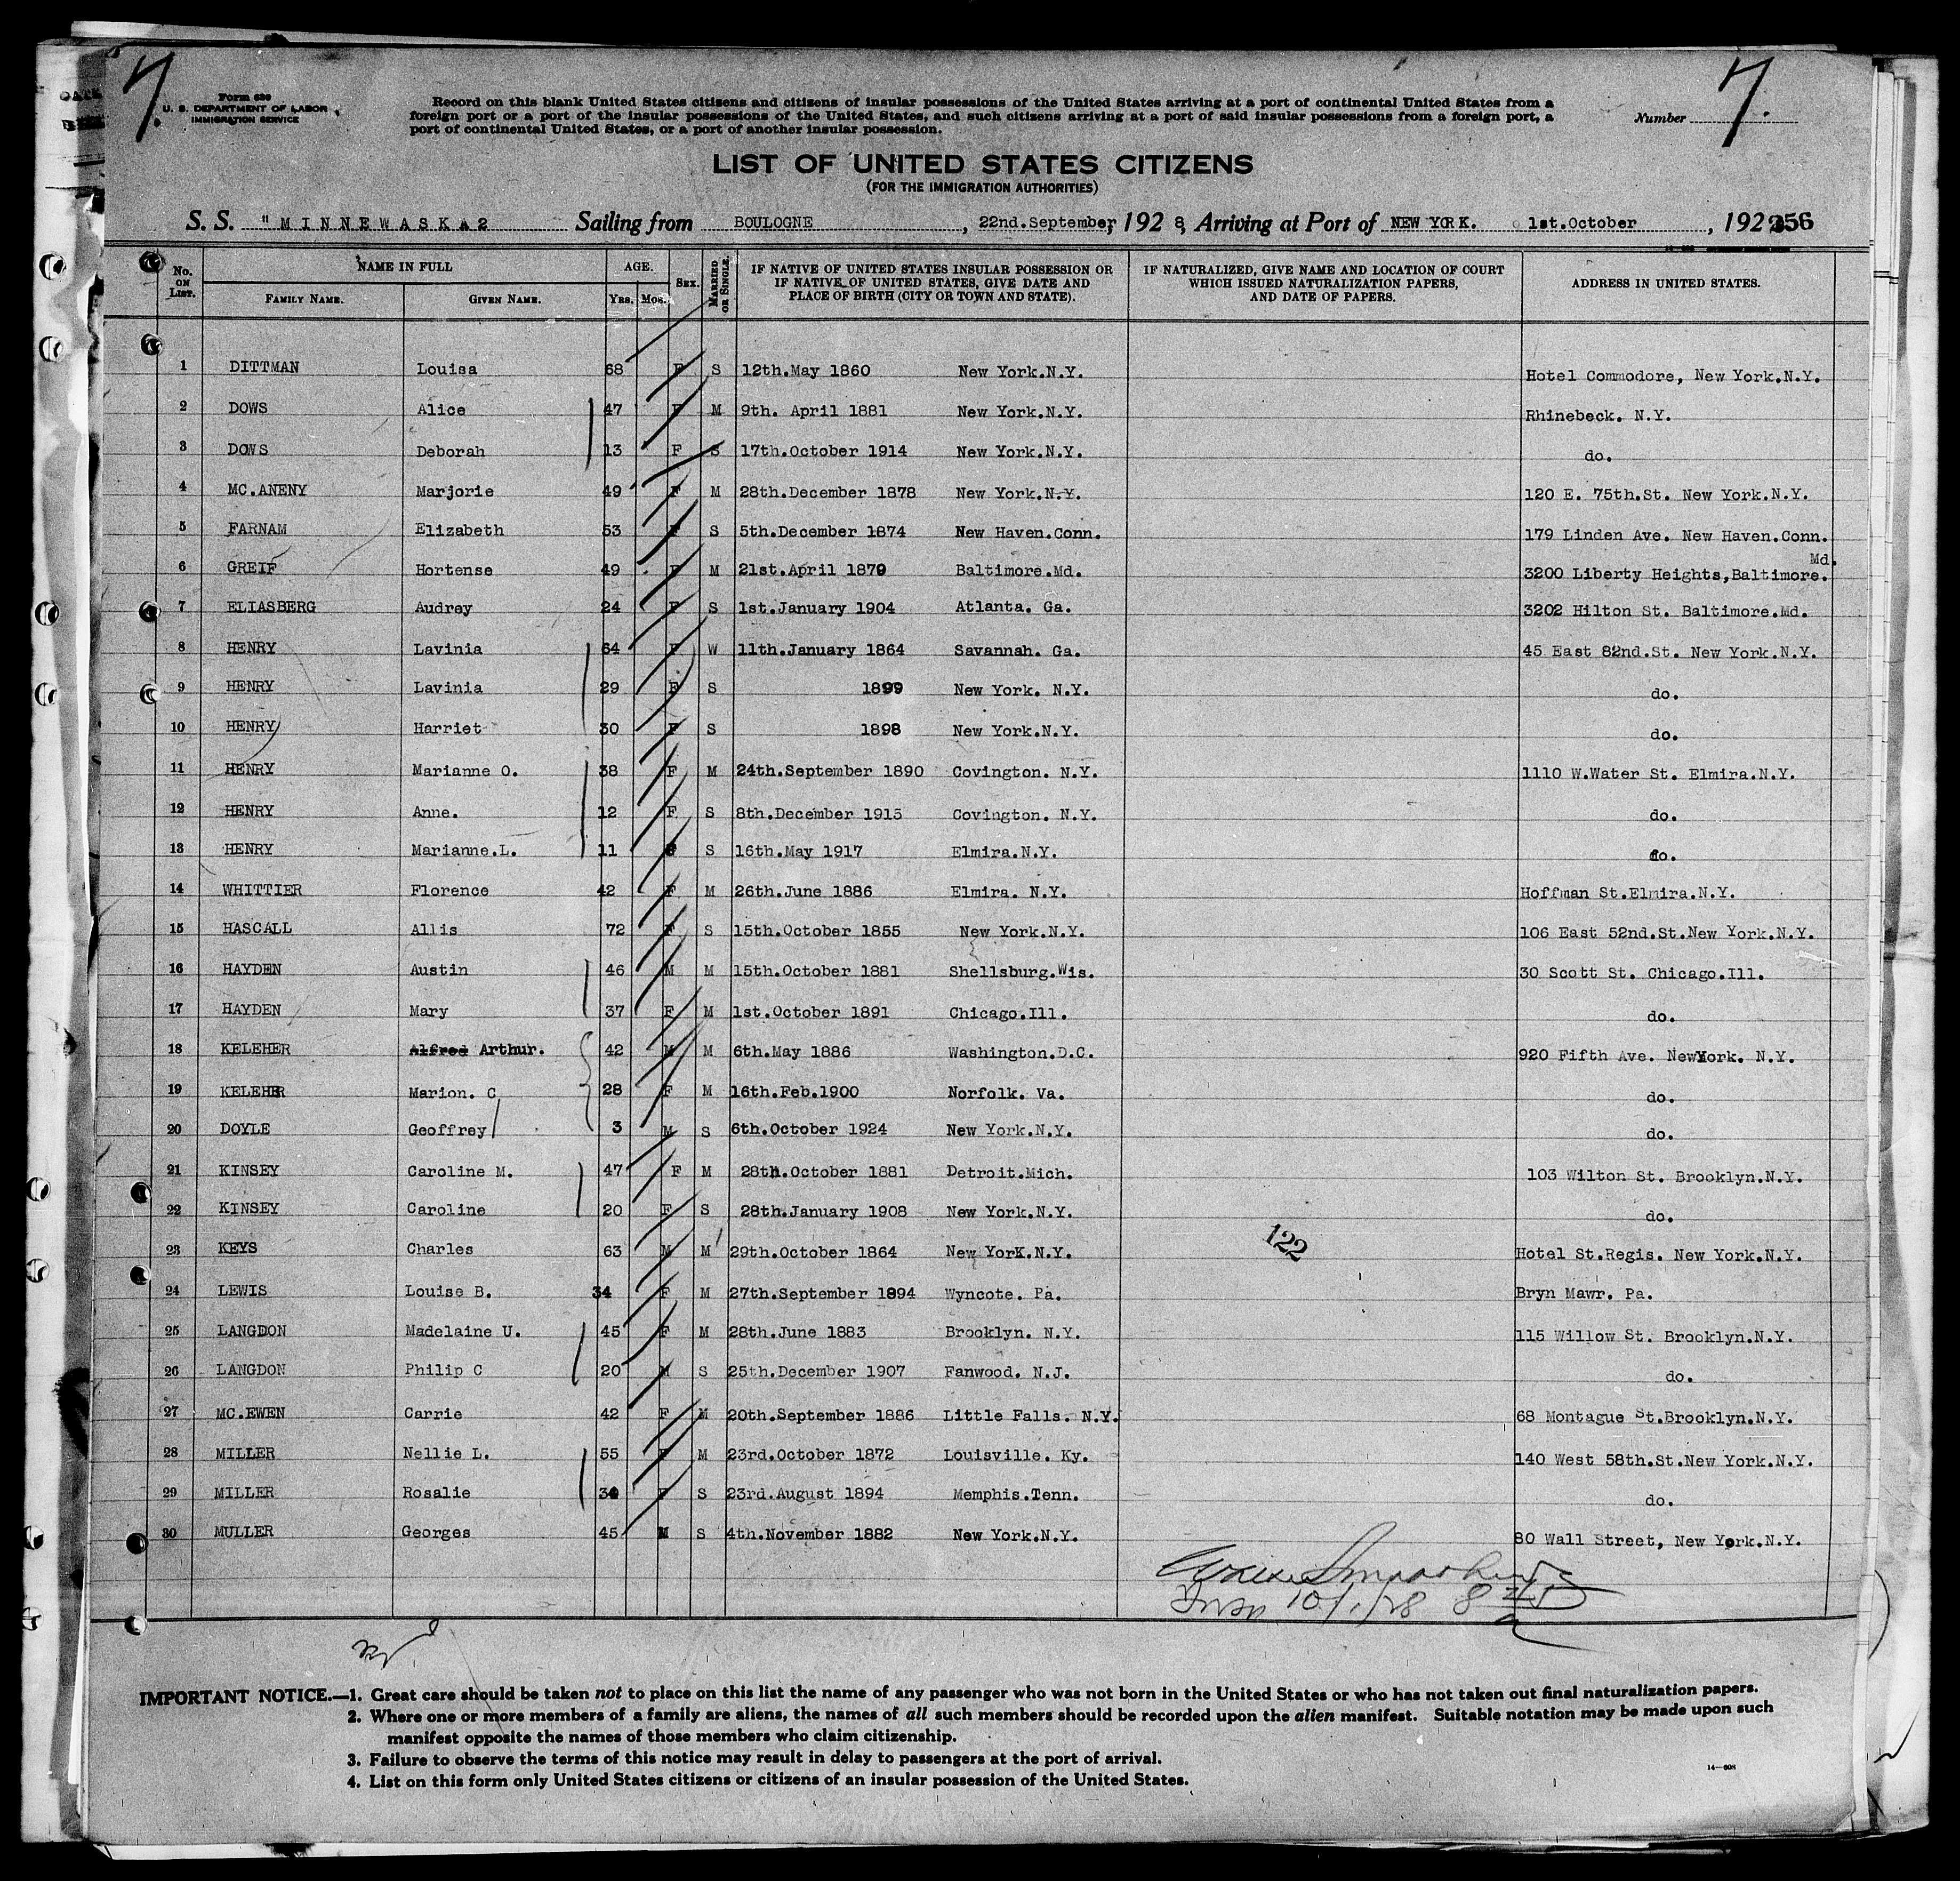 7. 7.
Form 630
U. S. DEPARTMENT OF LABOR
IMMIGRATION SERVICE
Record on this blank United States citizens and citizens of insular possessions of the United States arriving at a port of continental United States from a
foreign port or a port of the insular possessions of the United States, and such citizens arriving at a port of said insular possessions from a foreign port, a
port of continental United States, or a port of another insular possession.
Number
LIST OF UNITED STATES CITIZENS
(FOR THE IMMIGRATION AUTHORITIES)
S. S. "MINNEWASKA2 Sailing from BOULOGNE, 22nd.September, 1928, Arriving at Port of NEW YORK. 1st.October, 192 356
No. ON LIST. NAME IN FULL AGE. SEX. MARRIED OR SINGLE. IF NATIVE OF UNITED STATES INSULAR POSSESSION OR IF NATIVE OF UNITED STATES, GIVE DATE AND PLACE OF BIRTH (CITY OR TOWN AND STATE). IF NATURALIZED, GIVE NAME AND LOCATION OF COURT WHICH ISSUED NATURALIZATION PAPERS, AND DATE OF PAPERS. ADDRESS IN UNITED STATES.
FAMILY NAME. GIVEN NAME. YRS. MOS.
1 DITTMAN Louisa 68 F S 12th.May 1860 New York.N.Y. Hotel Commodore, New York.N.Y.
2 DOWS Alice 47 F M 9th. April 1881 New York.N.Y. Rhinebeck. N.Y.
3 DOWS Deborah 13 F S 17th.October 1914 New York.N.Y. do.
4 MC.ANENY Marjorie 49 F M 28th.December 1878 New York.N.Y. 120 E. 75th.St. New York.N.Y.
5 FARNAM Elizabeth 53 F S 5th.December 1874 New Haven.Conn. 179 Linden Ave. New Haven.Conn.
6 GREIF Hortense 49 F M 21st.April 1879 Baltimore.Md. 3200 Liberty Heights,Baltimore. Md.
7 ELIASBERG Audrey 24 F S 1st.January 1904 Atlanta. Ga. 3202 Hilton St. Baltimore.Md.
8 HENRY Lavinia 64 F W 11th.January 1864 Savannah. Ga. 45 East 82nd.St. New York.N.Y.
9 HENRY Lavinia 29 F S 1899 New York. N.Y. do.
10 HENRY Harriet 30 F S 1898 New York.N.Y. do.
11 HENRY Marianne O. 38 F M 24th.September 1890 Covington. N.Y. 1110 W.Water St. Elmira.N.Y.
12 HENRY Anne. 12 F S 8th.December 1915 Covington. N.Y. do.
13 HENRY Marianne.L. 11 F S 16th.May 1917 Elmira.N.Y. do.
14 WHITTIER Florence 42 F M 26th.June 1886 Elmira. N.Y. Hoffman St.Elmira.N.Y.
15 HASCALL Allis 72 F S 15th.October 1855 New York.N.Y. 106 East 52nd.St.New York.N.Y.
16 HAYDEN Austin 46 M M 15th.October 1881 Shellsburg.Wis. 30 Scott St. Chicago.Ill.
17 HAYDEN Mary 37 F M 1st.October 1891 Chicago.Ill. do.
18 KELEHER Alfred Arthur. 42 M M 6th.May 1886 Washington.D.C. 920 Fifth Ave. NewYork. N.Y.
19 KELEHER Marion. C 28 F M 16th.Feb.1900 Norfolk. Va. do.
20 DOYLE Geoffrey 3 M S 6th.October 1924 New York.N.Y. do.
21 KINSEY Caroline M. 47 F M 28th.October 1881 Detroit.Mich. 103 Wilton St. Brooklyn.N.Y.
22 KINSEY Caroline 20 F S 28th.January 1908 New York.N.Y. do.
122
23 KEYS Charles 63 M M 29th.October 1864 New YorK.N.Y. Hotel St.Regis. New York.N.Y.
24 LEWIS Louise B. 34 F M 27th.September 1894 Wyncote. Pa. Bryn Mawr. Pa.
25 LANGDON Madelaine U. 45 F M 28th.June 1883 Brooklyn. N.Y. 115 Willow St. Brooklyn.N.Y.
26 LANGDON Philip C 20 M S 25th.December 1907 Fanwood. N.J. do.
27 MC.EWEN Carrie 42 F M 20th.September 1886 Little Falls. N.Y. 68 Montague St.Brooklyn.N.Y.
28 MILLER Nellie L. 55 F M 23rd.October 1872 Louisville. Ky. 140 West 58th.St.New York.N.Y.
29 MILLER Rosalie 34 F S 23rd.August 1894 Memphis.Tenn. do.
30 MULLER Georges 45 M S 4th.November 1882 New York.N.Y. 80 Wall Street, New York.N.Y.
Insp 10/1/28
IMPORTANT NOTICE.—1. Great care should be taken not to place on this list the name of any passenger who was not born in the United States or who has not taken out final naturalization papers.
2. Where one or more members of a family are aliens, the names of all such members should be recorded upon the alien manifest. Suitable notation may be made upon such
manifest opposite the names of those members who claim citizenship.
3. Failure to observe the terms of this notice may result in delay to passengers at the port of arrival.
4. List on this form only United States citizens or citizens of an insular possession of the United States.
14—608